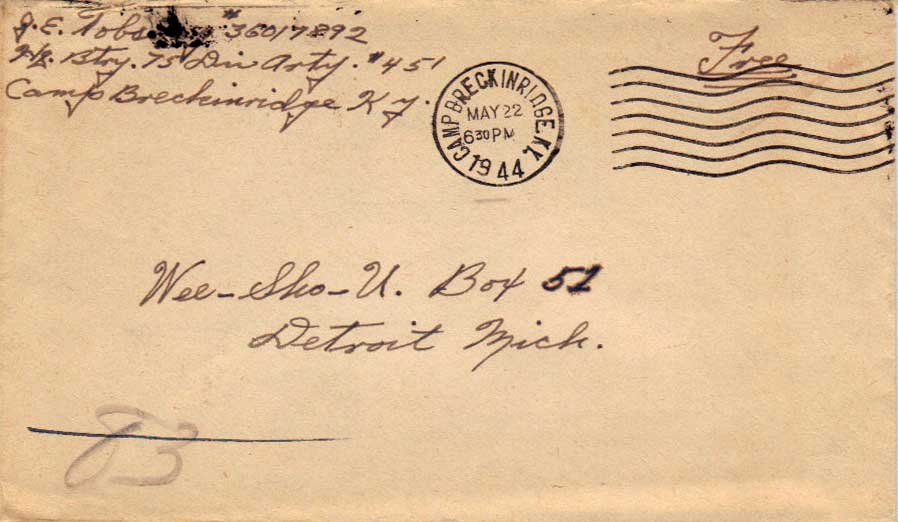 J. E. Tobs #36017892
Hq. Btry. 75 Div Arty. #451
Camp Breckinridge Ky.
Free
CAMP BRECKINRIDGE, KY.
MAY 22
630 PM
1944
Wee-Sho-U. Box 51
Detroit Mich.
83